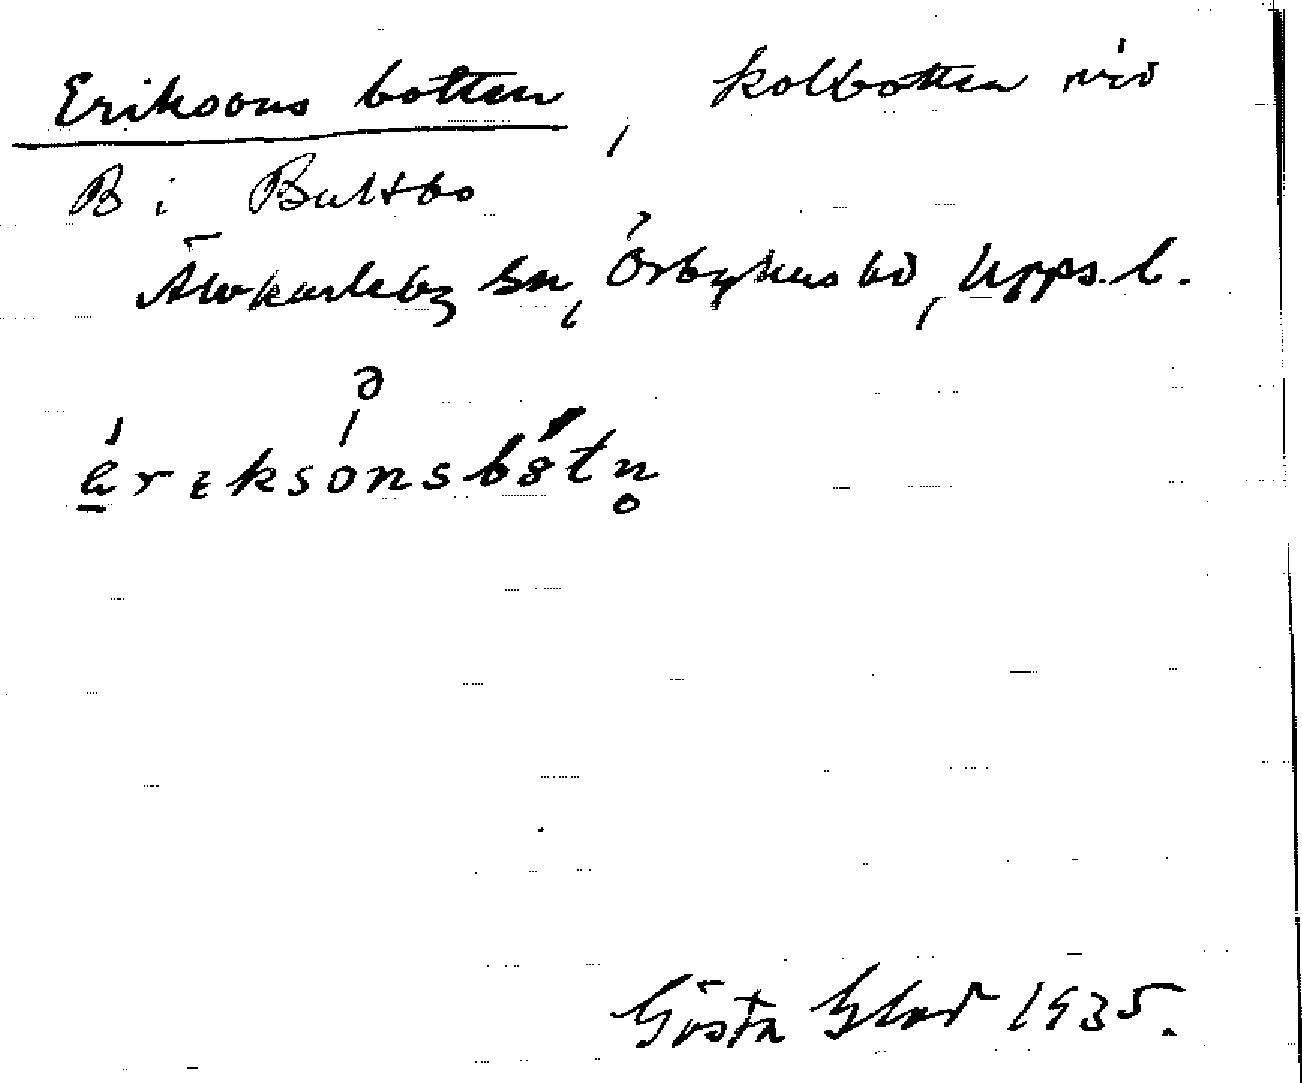 Eriksons botten, kolbotten vid
B i Bultbo
Älvkarleby sn, Örbyhus hd, Upps. l.
ə
èrɩksònsbo̊tn̥
Gösta Blad 1935.